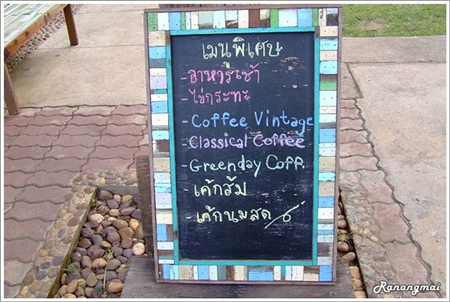 เมนูพิเศษ
- อาหารเช้า
- ไข่กระทะ
- Coffee Vintage
- Classical Coffee
- Greenday Coff.
- เค้กส้ม
- เค้กนมสด
Ranangmai